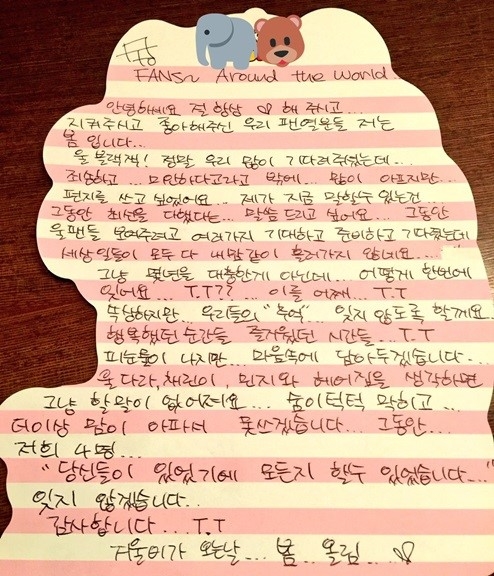 FANS~ Around the World...
안녕하세요 절 항상 ♡ 해 주시고...
지켜주시고 좋아해주신 우리 팬 열분들 저는
봄 입니다...
울 블랙잭! 정말 우리 많이 기다려주셨는데...
죄송하고... 미안하다고라고 밖에... 많이 아프지만...
편지를 쓰고 싶었어요... 제가 지금 막할수 있는건...
그동안 최선을 다했다는... 말씀 드리고 싶어요... 그동안
울팬들 보여주려고 여러가지 기대하고 준비하고 기다렸는데
세상일들이 모두 다 내맘같이 흘러가지 않네요...
그냥 몇년을 대충한게 아닌데... 어떻게 한번에
잊어요... T.T?? ... 이를 어째... T.T
속상하지만... 우리들의 "추억"... 잊지 않도록 할께요...
행복했던 순간들 즐거웠던 시간들... T.T
피눈물이 나지만... 마음속에 담아두겠습니다...
울 다라, 채린이, 민지와 헤어짐을 생각하면
그냥 할말이 없어져요... 숨이턱턱 막히고...
더이상 맘이 아파서 못쓰겠습니다... 그동안...
저희 4명...
"당신들이 있었기에 모든지 할수 있었습니다..."
잊지 않겠습니다..
감사합니다... T.T
겨울비가 오는날... 봄.. 올림... ♡